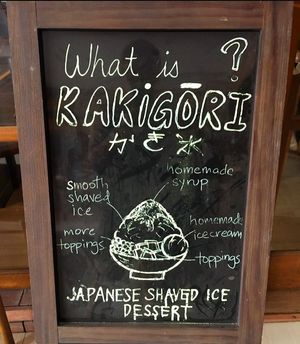 What is ?
KAKIGŌRI
かき氷
smooth
shaved
ice
homemade
syrup
more
toppings
homemade
icecream
toppings
JAPANESE SHAVED ICE
DESSERT